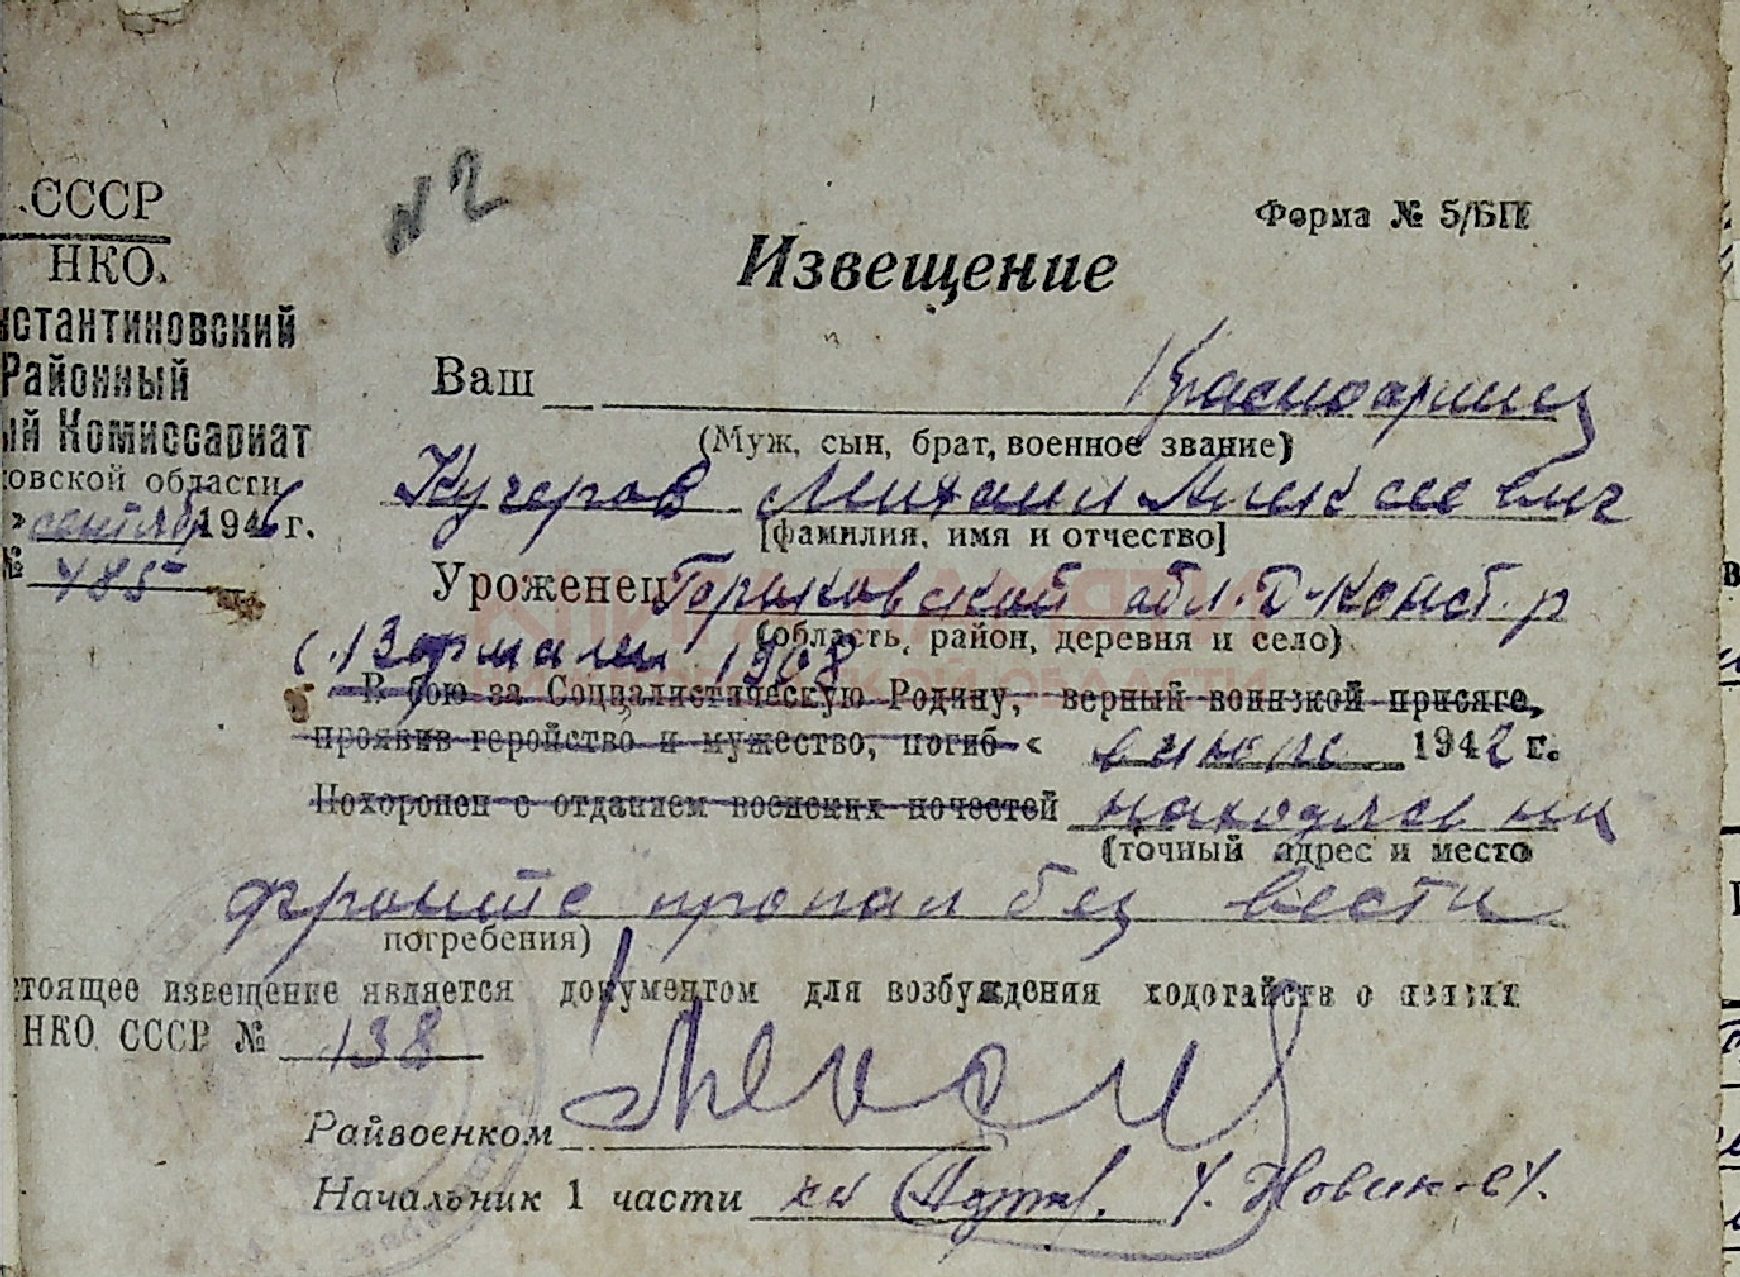 .СССР
НКО.
нстантиновский
Районный
ый Комиссариат
овской области
» сентябр 1946 г.
№ 485
N 2
Форма № 5/БП
Извещение
Ваш Красноармеец
(Муж, сын, брат, военное звание)
Кучеров Михаил Алексеевич
[фамилия, имя и отчество]
Уроженец Горьковской обл. Д-Конст. р
(область, район, деревня и село)
1908
В бою за Социалистическую Родину, верный воинской присяге,
проявив геройство и мужество, погиб « в июле 1942 г.
Похоронен с отданием военских почестей находясь на
(точный адрес и место
фронте пропал без вести
погребения)
стоящее извещение является документом для возбуждения ходотайств о
НКО СССР № 138
Райвоенком
Начальник 1 части
КНИГА ПАМЯТИ
НИЖЕГОРОДСКОЙ ОБЛАСТИ